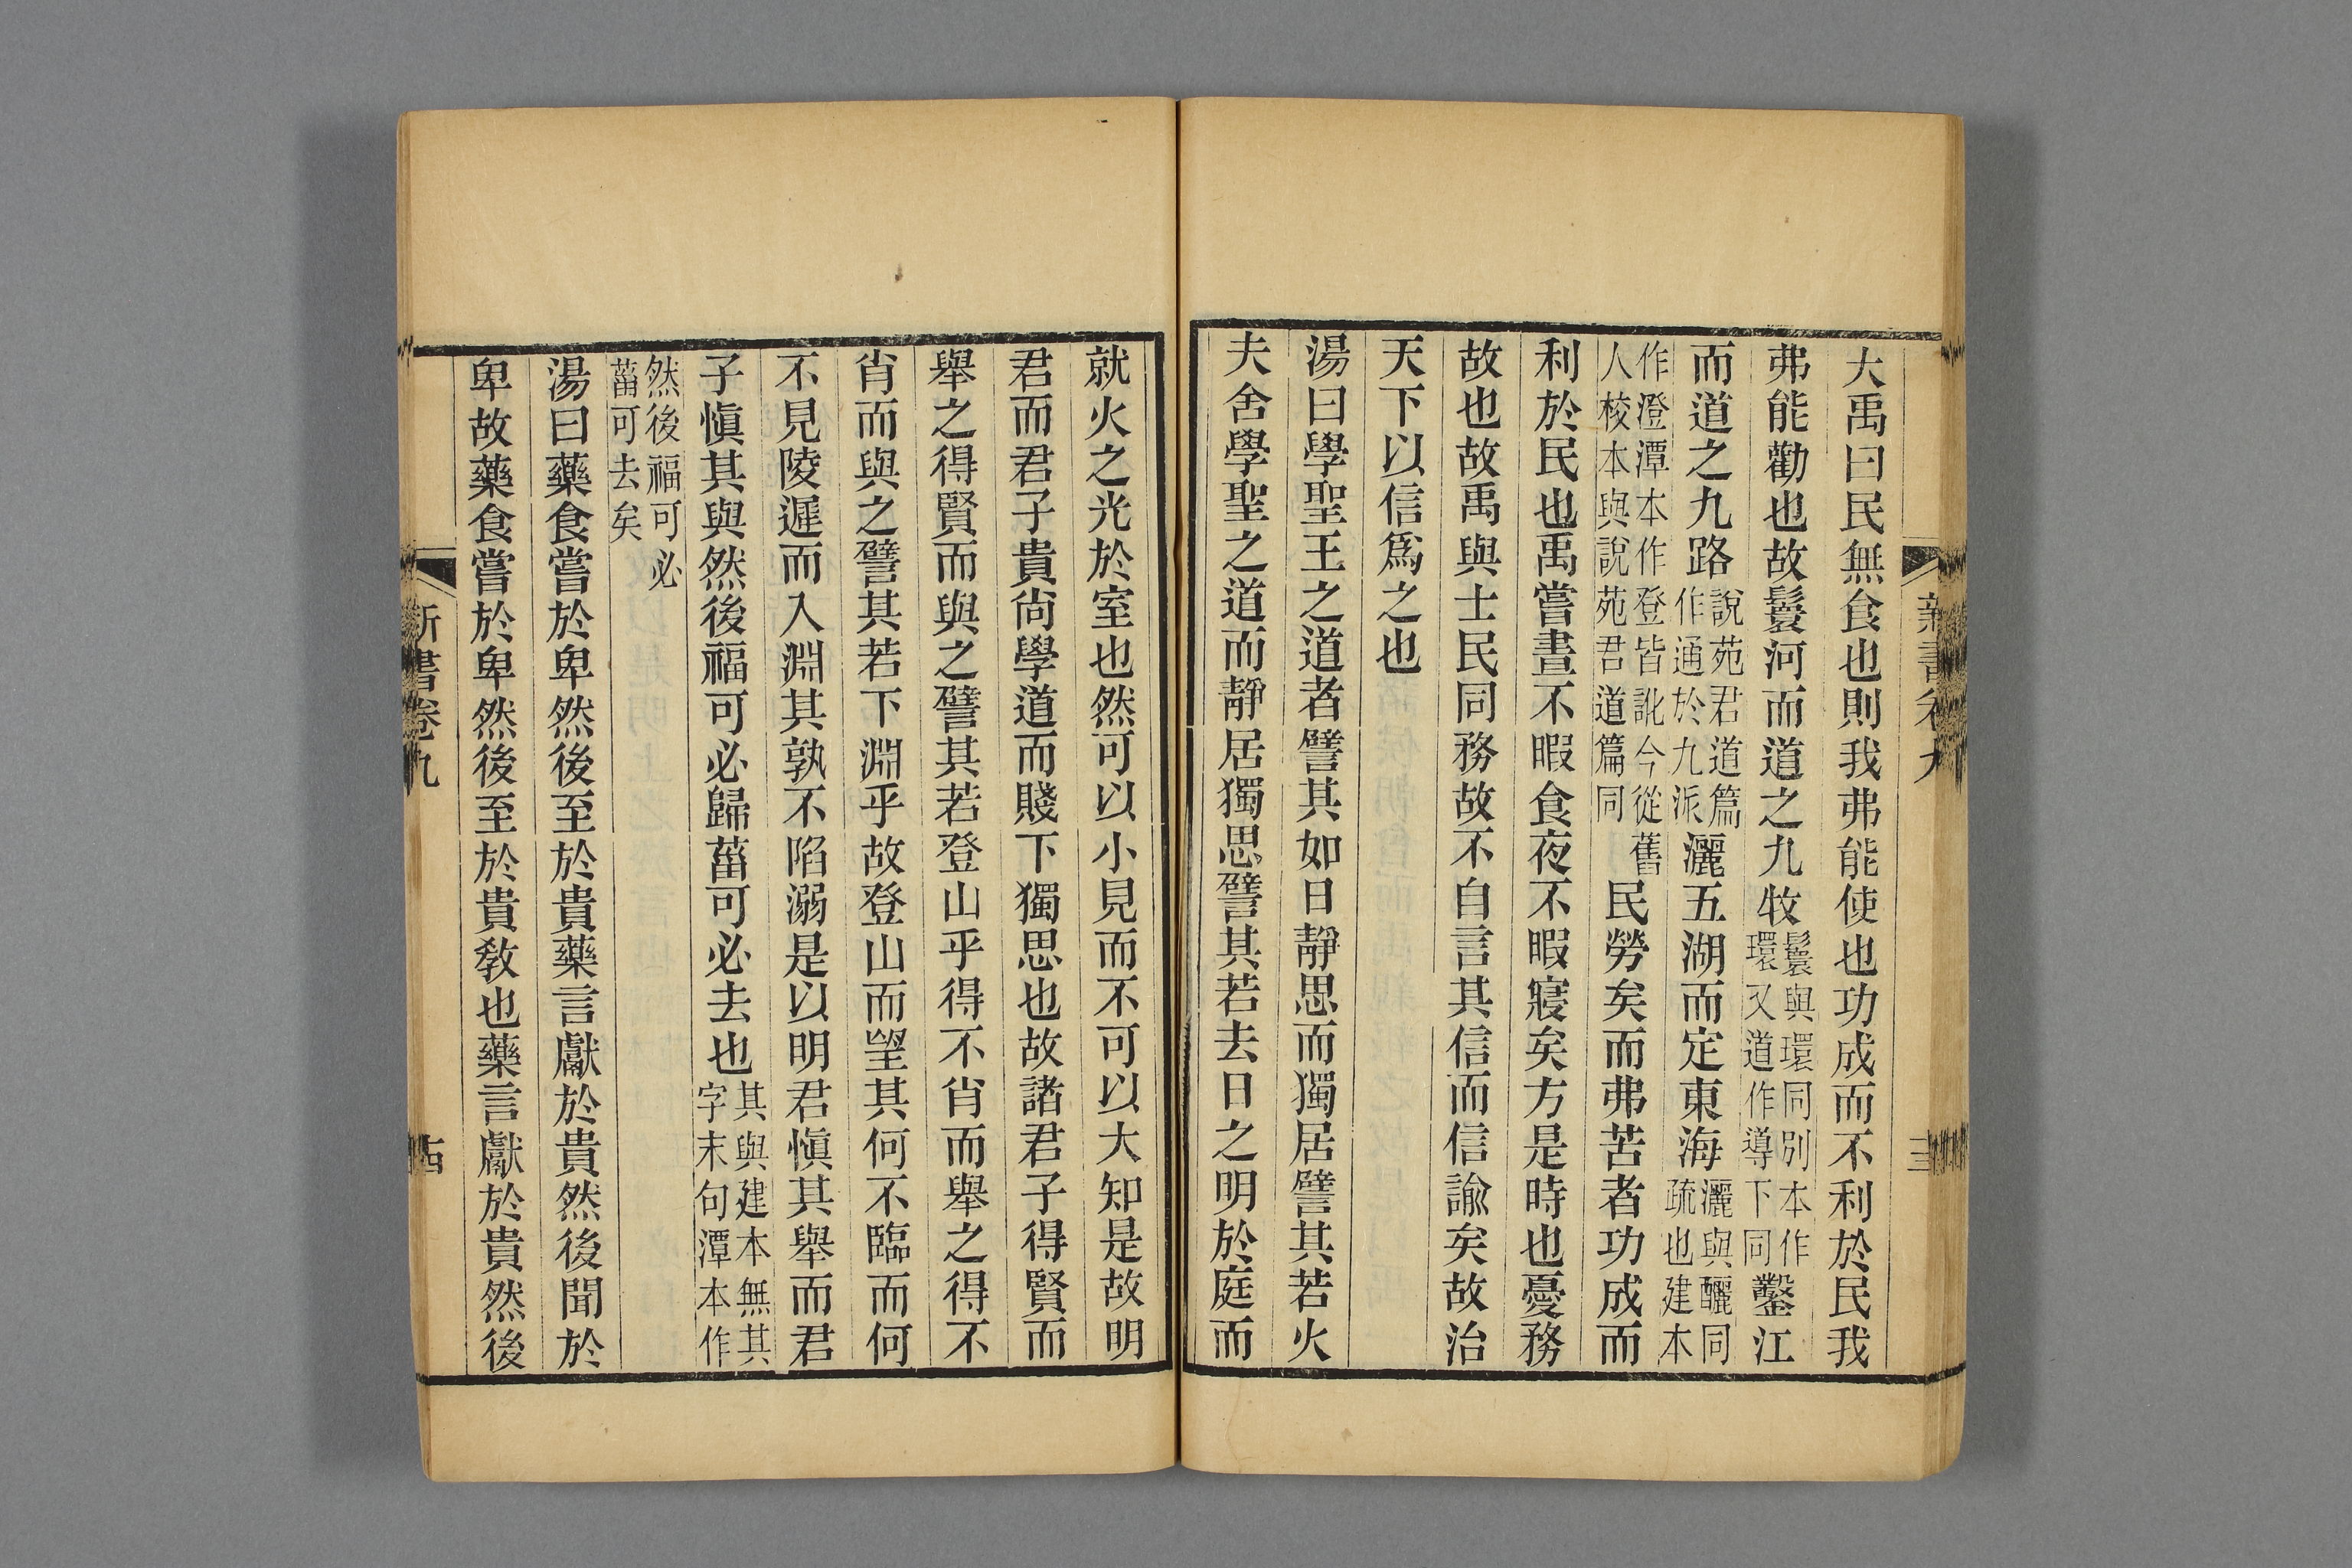 大禹曰民無食也則我弗能使也功成而不利於民我
弗能勸也故鬟河而道之九牧鬟與環同別本作環又道作導下同鑿江
而道之九路說苑君道篇作通於九派灑五湖而定東海灑與釃同疏也建本
作澄潭本作登皆訛今從舊人校本與說苑君道篇同民勞矣而弗苦者功成而
利於民也禹嘗晝不暇食夜不暇寢矣方是時也憂務
故也故禹與士民同務故不自言其信而信諭矣故治
天下以信爲之也
湯曰學聖王之道者譬其如日靜思而獨居譬其若火
夫舍學聖之道而靜居獨思譬其若去日之明於庭而
就火之光於室也然可以小見而不可以大知是故明
君而君子貴尚學道而賤下獨思也故諸君子得賢而
舉之得賢而與之譬其若登山乎得不肖而舉之得不
肖而與之譬其若下淵乎故登山而望其何不臨而何
不見陵遲而入淵其孰不陷溺是以明君愼其舉而君
子愼其與然後福可必歸菑可必去也其與建本無其字末句潭本作
然後福可必菑可去矣
湯曰藥食嘗於卑然後至於貴藥言獻於貴然後聞於
卑故藥食嘗於卑然後至於貴敎也藥言獻於貴然後
新書卷九
十四